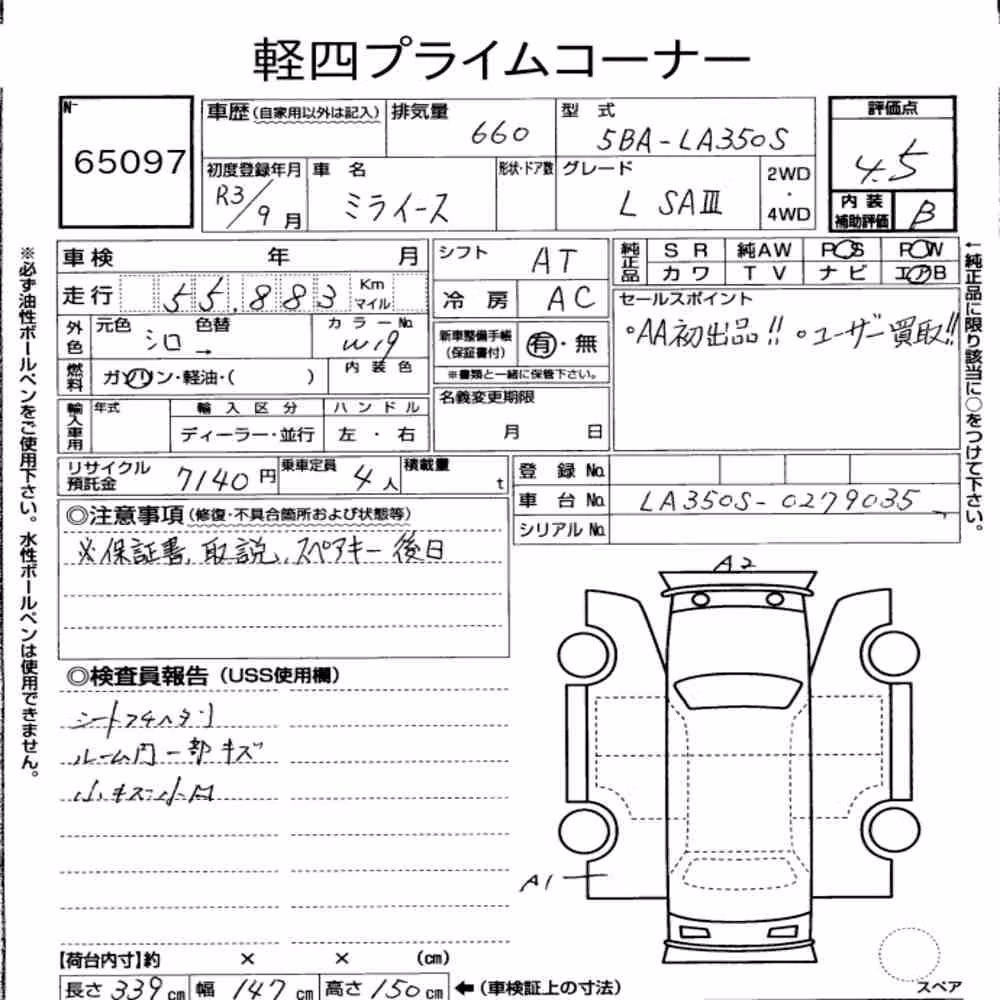 軽四プライムコーナー
N-
65097
車歴(自家用以外は記入)
排気量
660
型 式
5BA-LA350S
評価点
4.5
初度登録年月
R3/9月
車 名
ミライース
形状・ドア数
グレード
L SAⅢ
2WD
・
4WD
内装
補助評価
B
車検 年 月
走行 55,883 Km
マイル
シフト AT
冷房 AC
純正品
SR 純AW PS PW
カワ TV ナビ エアB
セールスポイント
○AA初出品!! ○ユーザー買取!!
外色
元色 シロ
色替 →
カラーNo.
W19
新車整備手帳
(保証書付)
有・無
※書類と一緒に保管下さい。
燃料
ガソリン・軽油・( )
内装色
名義変更期限
月 日
輸入車用
年式
輸入区分
ディーラー・並行
ハンドル
左・右
リサイクル
預託金
7140円
乗車定員
4人
積載量
t
登録No.
車台No. LA350S-0279035
シリアルNo.
◎注意事項(修復・不具合箇所および状態等)
※保証書、取説、スペアキー後日
◎検査員報告(USS使用欄)
ルーム内一部キズ
小キズ小凹
A2
A1
【荷台内寸】約 × × (cm)
長さ 339cm 幅 147cm 高さ 150cm ←(車検証上の寸法)
スペア
※必ず油性ボールペンをご使用下さい。水性ボールペンは使用できません。
←純正品に限り該当に○をつけて下さい。